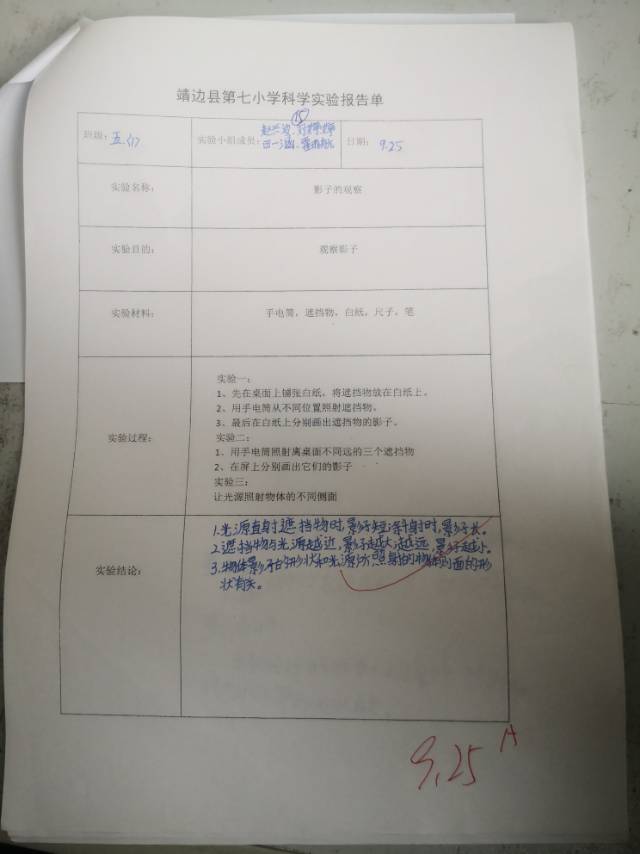 靖边县第七小学科学实验报告单
⑮
班级：五(1) 实验小组成员： 日期：9.25
实验名称： 影子的观察
实验目的： 观察影子
实验材料： 手电筒，遮挡物，白纸，尺子，笔
实验过程：
实验一：
1、先在桌面上铺张白纸，将遮挡物放在白纸上。
2、用手电筒从不同位置照射遮挡物。
3、最后在白纸上分别画出遮挡物的影子。
实验二：
1、用手电筒照射离桌面不同远的三个遮挡物
2、在屏上分别画出它们的影子
实验三：
让光源照射物体的不同侧面
实验结论：
1.光源直射遮挡物时,影子短,斜射时,影子长。
2.遮挡物与光源越近,影子越大,越远,影子越小。
3.物体影子的形状和光源所照射的物体侧面的形
状有关。
9.25 A